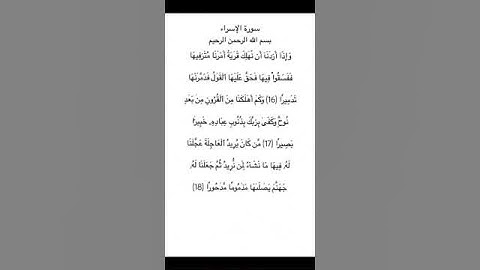 سورة الإسراء
بسم الله الرحمن الرحيم
وَإِذَآ أَرَدْنَآ أَن نُّهْلِكَ قَرْيَةً أَمَرْنَا مُتْرَفِيهَا
فَفَسَقُوا۟ فِيهَا فَحَقَّ عَلَيْهَا ٱلْقَوْلُ فَدَمَّرْنَـٰهَا
تَدْمِيرًا (16) وَكَمْ أَهْلَكْنَا مِنَ ٱلْقُرُونِ مِنۢ بَعْدِ
نُوحٍ وَكَفَىٰ بِرَبِّكَ بِذُنُوبِ عِبَادِهِۦ خَبِيرًۢا
بَصِيرًا (17) مَّن كَانَ يُرِيدُ ٱلْعَاجِلَةَ عَجَّلْنَا
لَهُۥ فِيهَا مَا نَشَآءُ لِمَن نُّرِيدُ ثُمَّ جَعَلْنَا لَهُۥ
جَهَنَّمَ يَصْلَىٰهَا مَذْمُومًا مَّدْحُورًا (18)